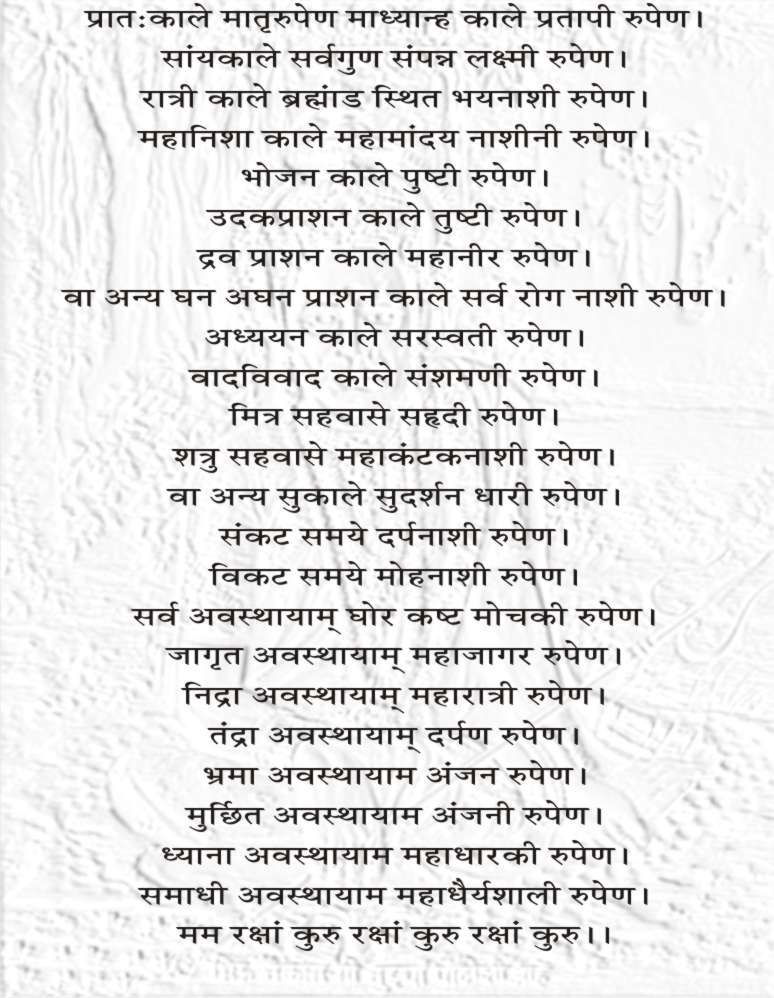 प्रात:काले मातृरुपेण माध्यान्ह काले प्रतापी रुपेण।
सांयकाले सर्वगुण संपन्न लक्ष्मी रुपेण।
रात्री काले ब्रह्मांड स्थित भयनाशी रुपेण।
महानिशा काले महामांदय नाशीनी रुपेण।
भोजन काले पुष्टी रुपेण।
उदकप्राशन काले तुष्टी रुपेण।
द्रव प्राशन काले महानीर रुपेण।
वा अन्य घन अघन प्राशन काले सर्व रोग नाशी रुपेण।
अध्ययन काले सरस्वती रुपेण।
वादविवाद काले संशमणी रुपेण।
मित्र सहवासे सहृदी रुपेण।
शत्रु सहवासे महाकंटकनाशी रुपेण।
वा अन्य सुकाले सुदर्शन धारी रुपेण।
संकट समये दर्पनाशी रुपेण।
विकट समये मोहनाशी रुपेण।
सर्व अवस्थायाम् घोर कष्ट मोचकी रुपेण।
जागृत अवस्थायाम् महाजागर रुपेण।
निद्रा अवस्थायाम् महारात्री रुपेण।
तंद्रा अवस्थायाम् दर्पण रुपेण।
भ्रमा अवस्थायाम अंजन रुपेण।
मुर्छित अवस्थायाम अंजनी रुपेण।
ध्याना अवस्थायाम महाधारकी रुपेण।
समाधी अवस्थायाम महाधैर्यशाली रुपेण।
मम रक्षां कुरु रक्षां कुरु रक्षां कुरु।।